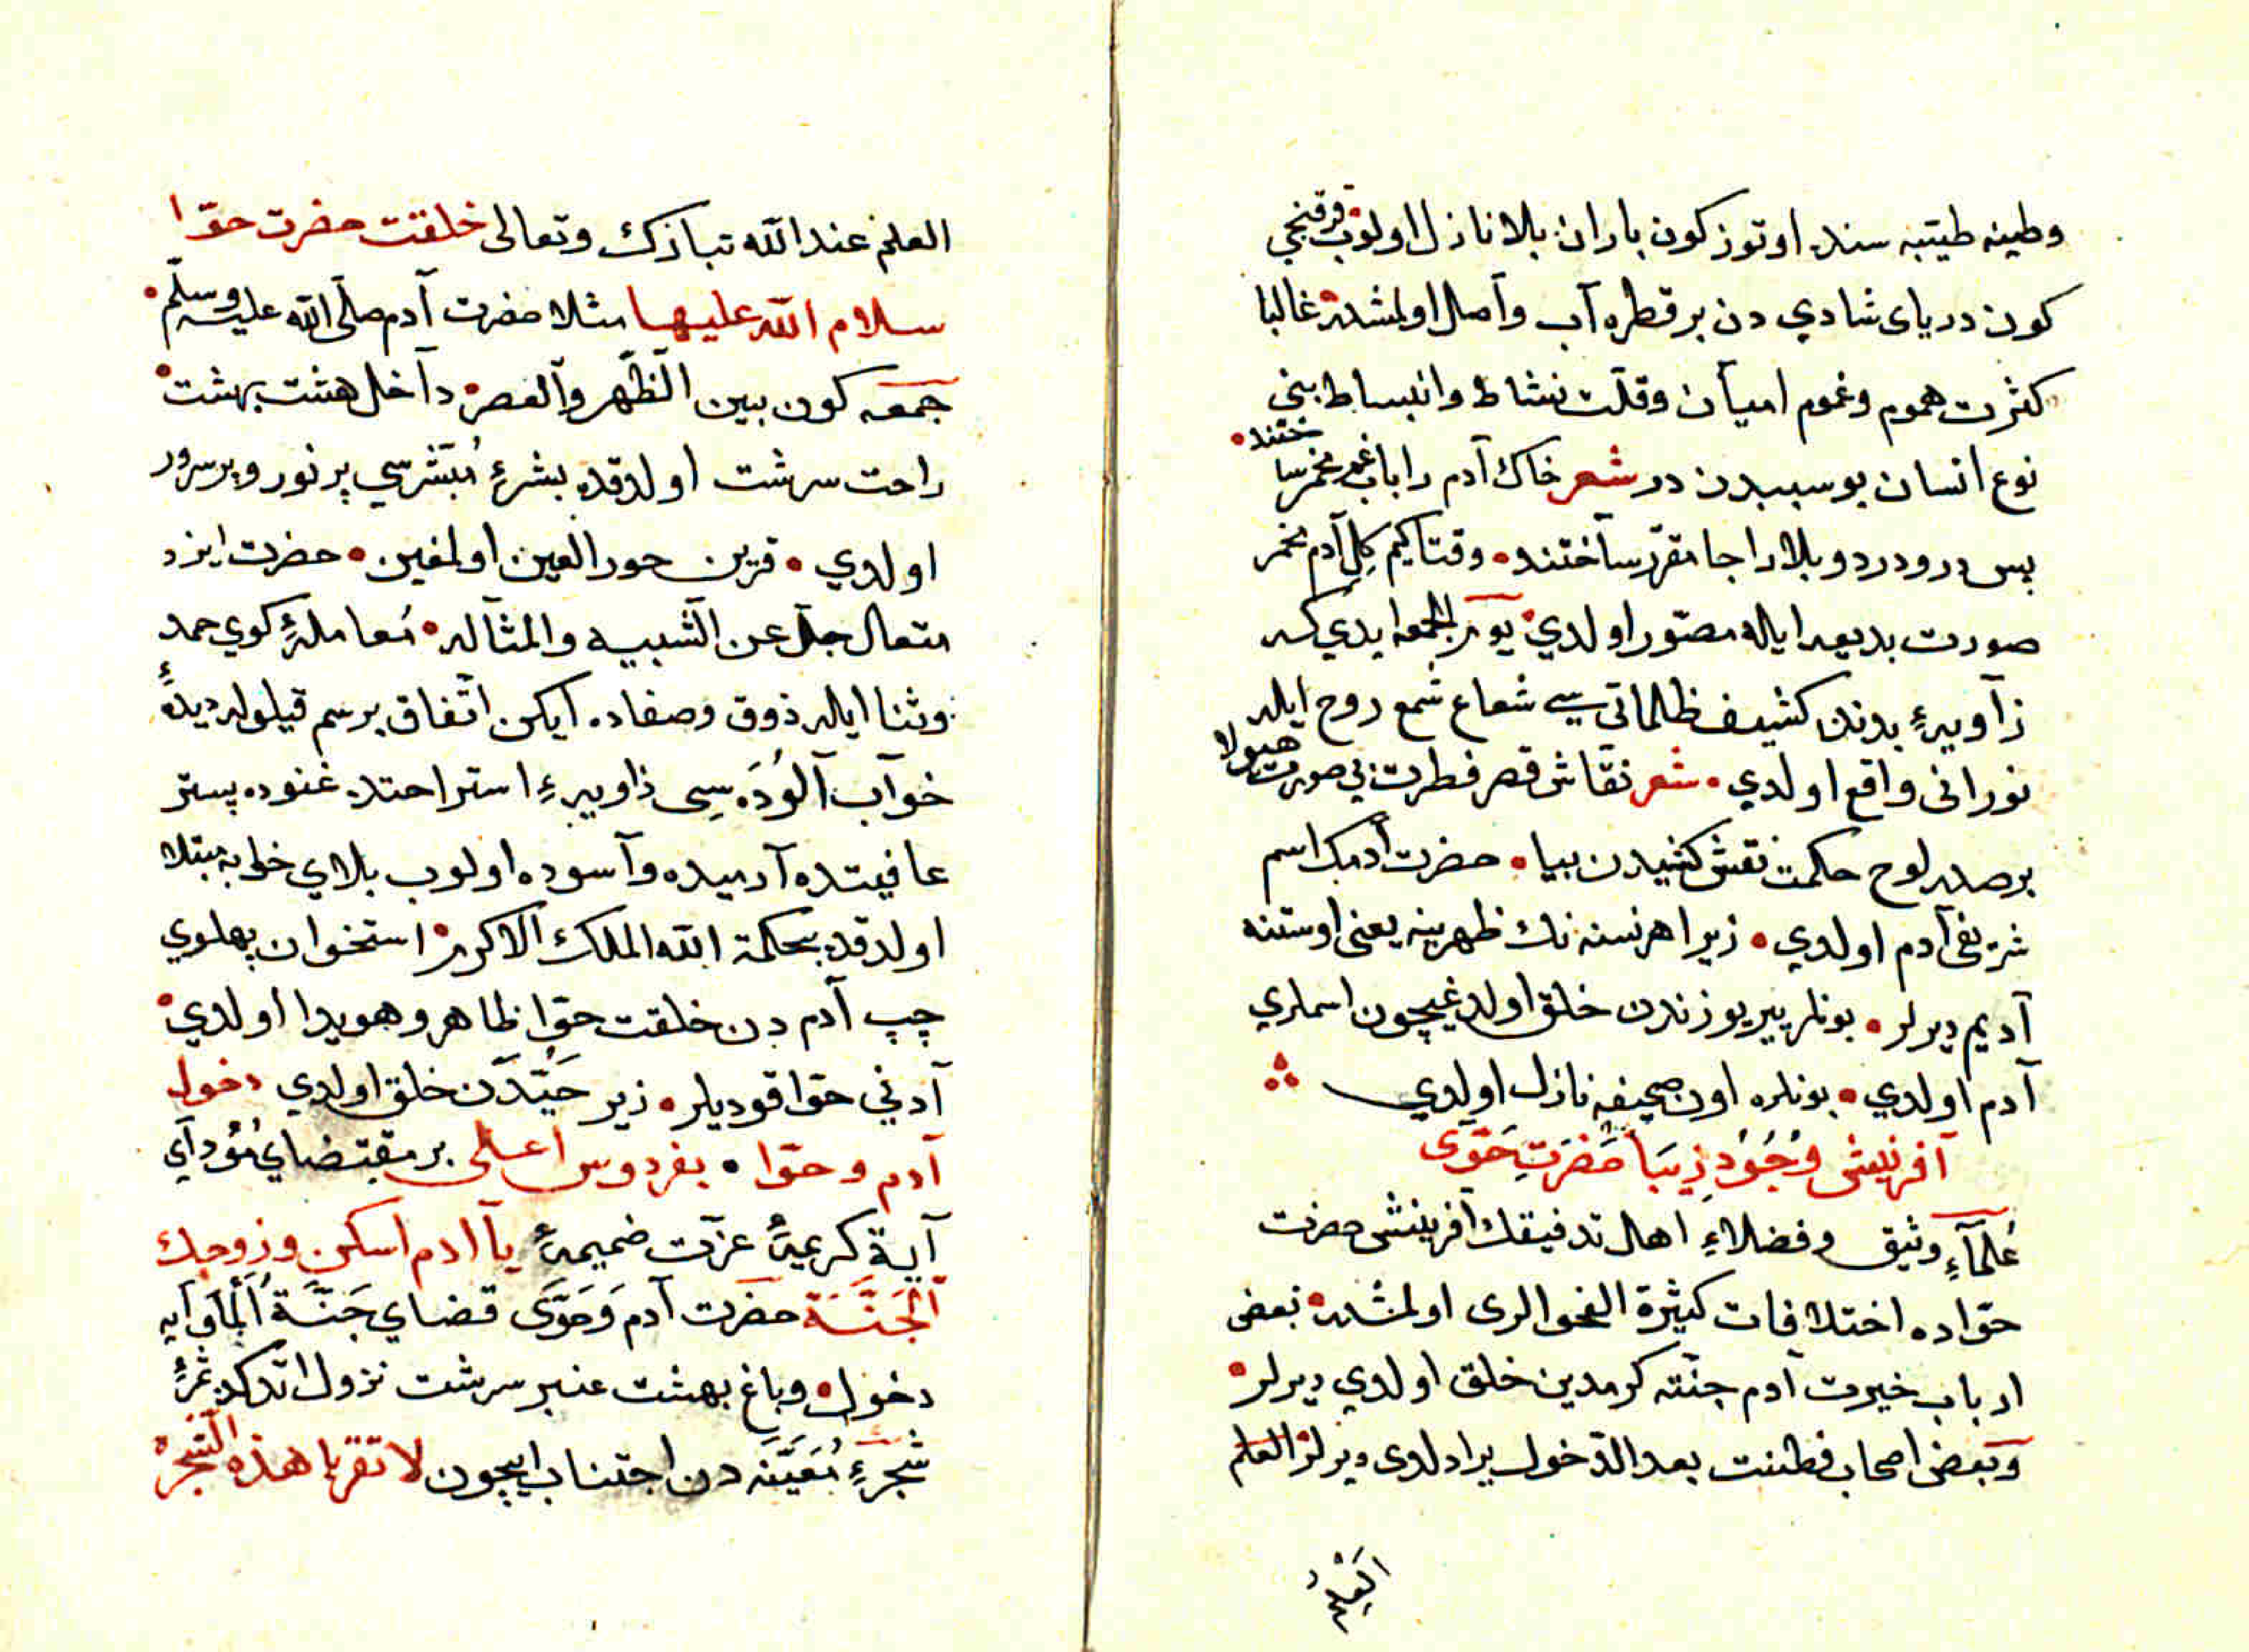 وطينه طيتبه سنده اوتوز كون باران بلا نازل اولوب قرقنجي
كون درياى شادي دن بر قطره آب واصل اولمشدر غالبا
كثرت هموم وغموم اميان وقلت نشاط وانبساط بني
نوع انسان بو سببدن در شعر خاك آدم را باب غم مخمر ساختند
پس درو درد وبلا را جا مقرر ساختند وقتاكيم كل آدم مخمر
صورت بديعه ايله مصور اولدي يوم الجمعه ايدي كه
زاويهء بدندن كثيف ظلماتى سي شعاع شمع روح ايله
نورانى واقع اولدي شعر نقاش قصر فطرت بي صورت هيولا
بر صدر لوح حكمت نقش كشيدن بيا حضرت آدمك اسم
شريفى آدم اولدي زيرا هر نسنه نك ظهرينه يعنى اوستنه
آديم ديرلر بونلر يير يوزندن خلق اولدغيچون اسملري
آدم اولدي بونلره اون صحيفه نازل اولدي
آفرينش وجود زيبا حضرت حوى
علماء وثيق وفضلاء اهل تدقيقك آفرينش حضرت
حواده اختلافات كثيرة الفحوالرى اولمشدر بعض
ارباب خيرت آدم جنته كرمدين خلق اولدي ديرلر
وبعض اصحاب فطنت بعد الدخول يرادلدى ديرلر العلم
العلم عند الله تبارك وتعالى خلقت حضرت حوا
سلام الله عليها مثلا حضرت آدم صلى الله عليه وسلم
جمعه كون بين الظهر والعصر داخل هشت بهشت
راحت سرشت اولدقده بشرهء مبشرسي پر نور وپر سرور
اولدي قرين حور العين اولمغين حضرت ايزد
متعال جل عن الشبيه والمثاله معاملهء كوي حمد
وثنا ايله ذوق وصفاده ايكن اتفاق برسم قيلوله ديدهء
خواب آلوده سى زاويهء استراحتده غنوده بستر
عافيتده آرميده وآسوده اولوب بلاي خوابه مبتلا
اولدقده بحكمة الله الملك الاكرم استخوان پهلوي
چپ آدم دن خلقت حوا ظاهر وهويدا اولدي
آدني حوا قوديلر زير حيدن خلق اولدي دخول
آدم وحوا بفردوس اعلى بر مقتضاي مؤداي
آية كريمهء عزت ضميمهء يا آدم اسكن وزوجك
الجنة حضرت آدم وحوى قضاي جنة المأوايه
دخول وباغ بهشت عنبر سرشت نزول اتدكده ثمرهء
شجرهء معينه دن اجتناب ايچون لا تقربا هذه الشجرة